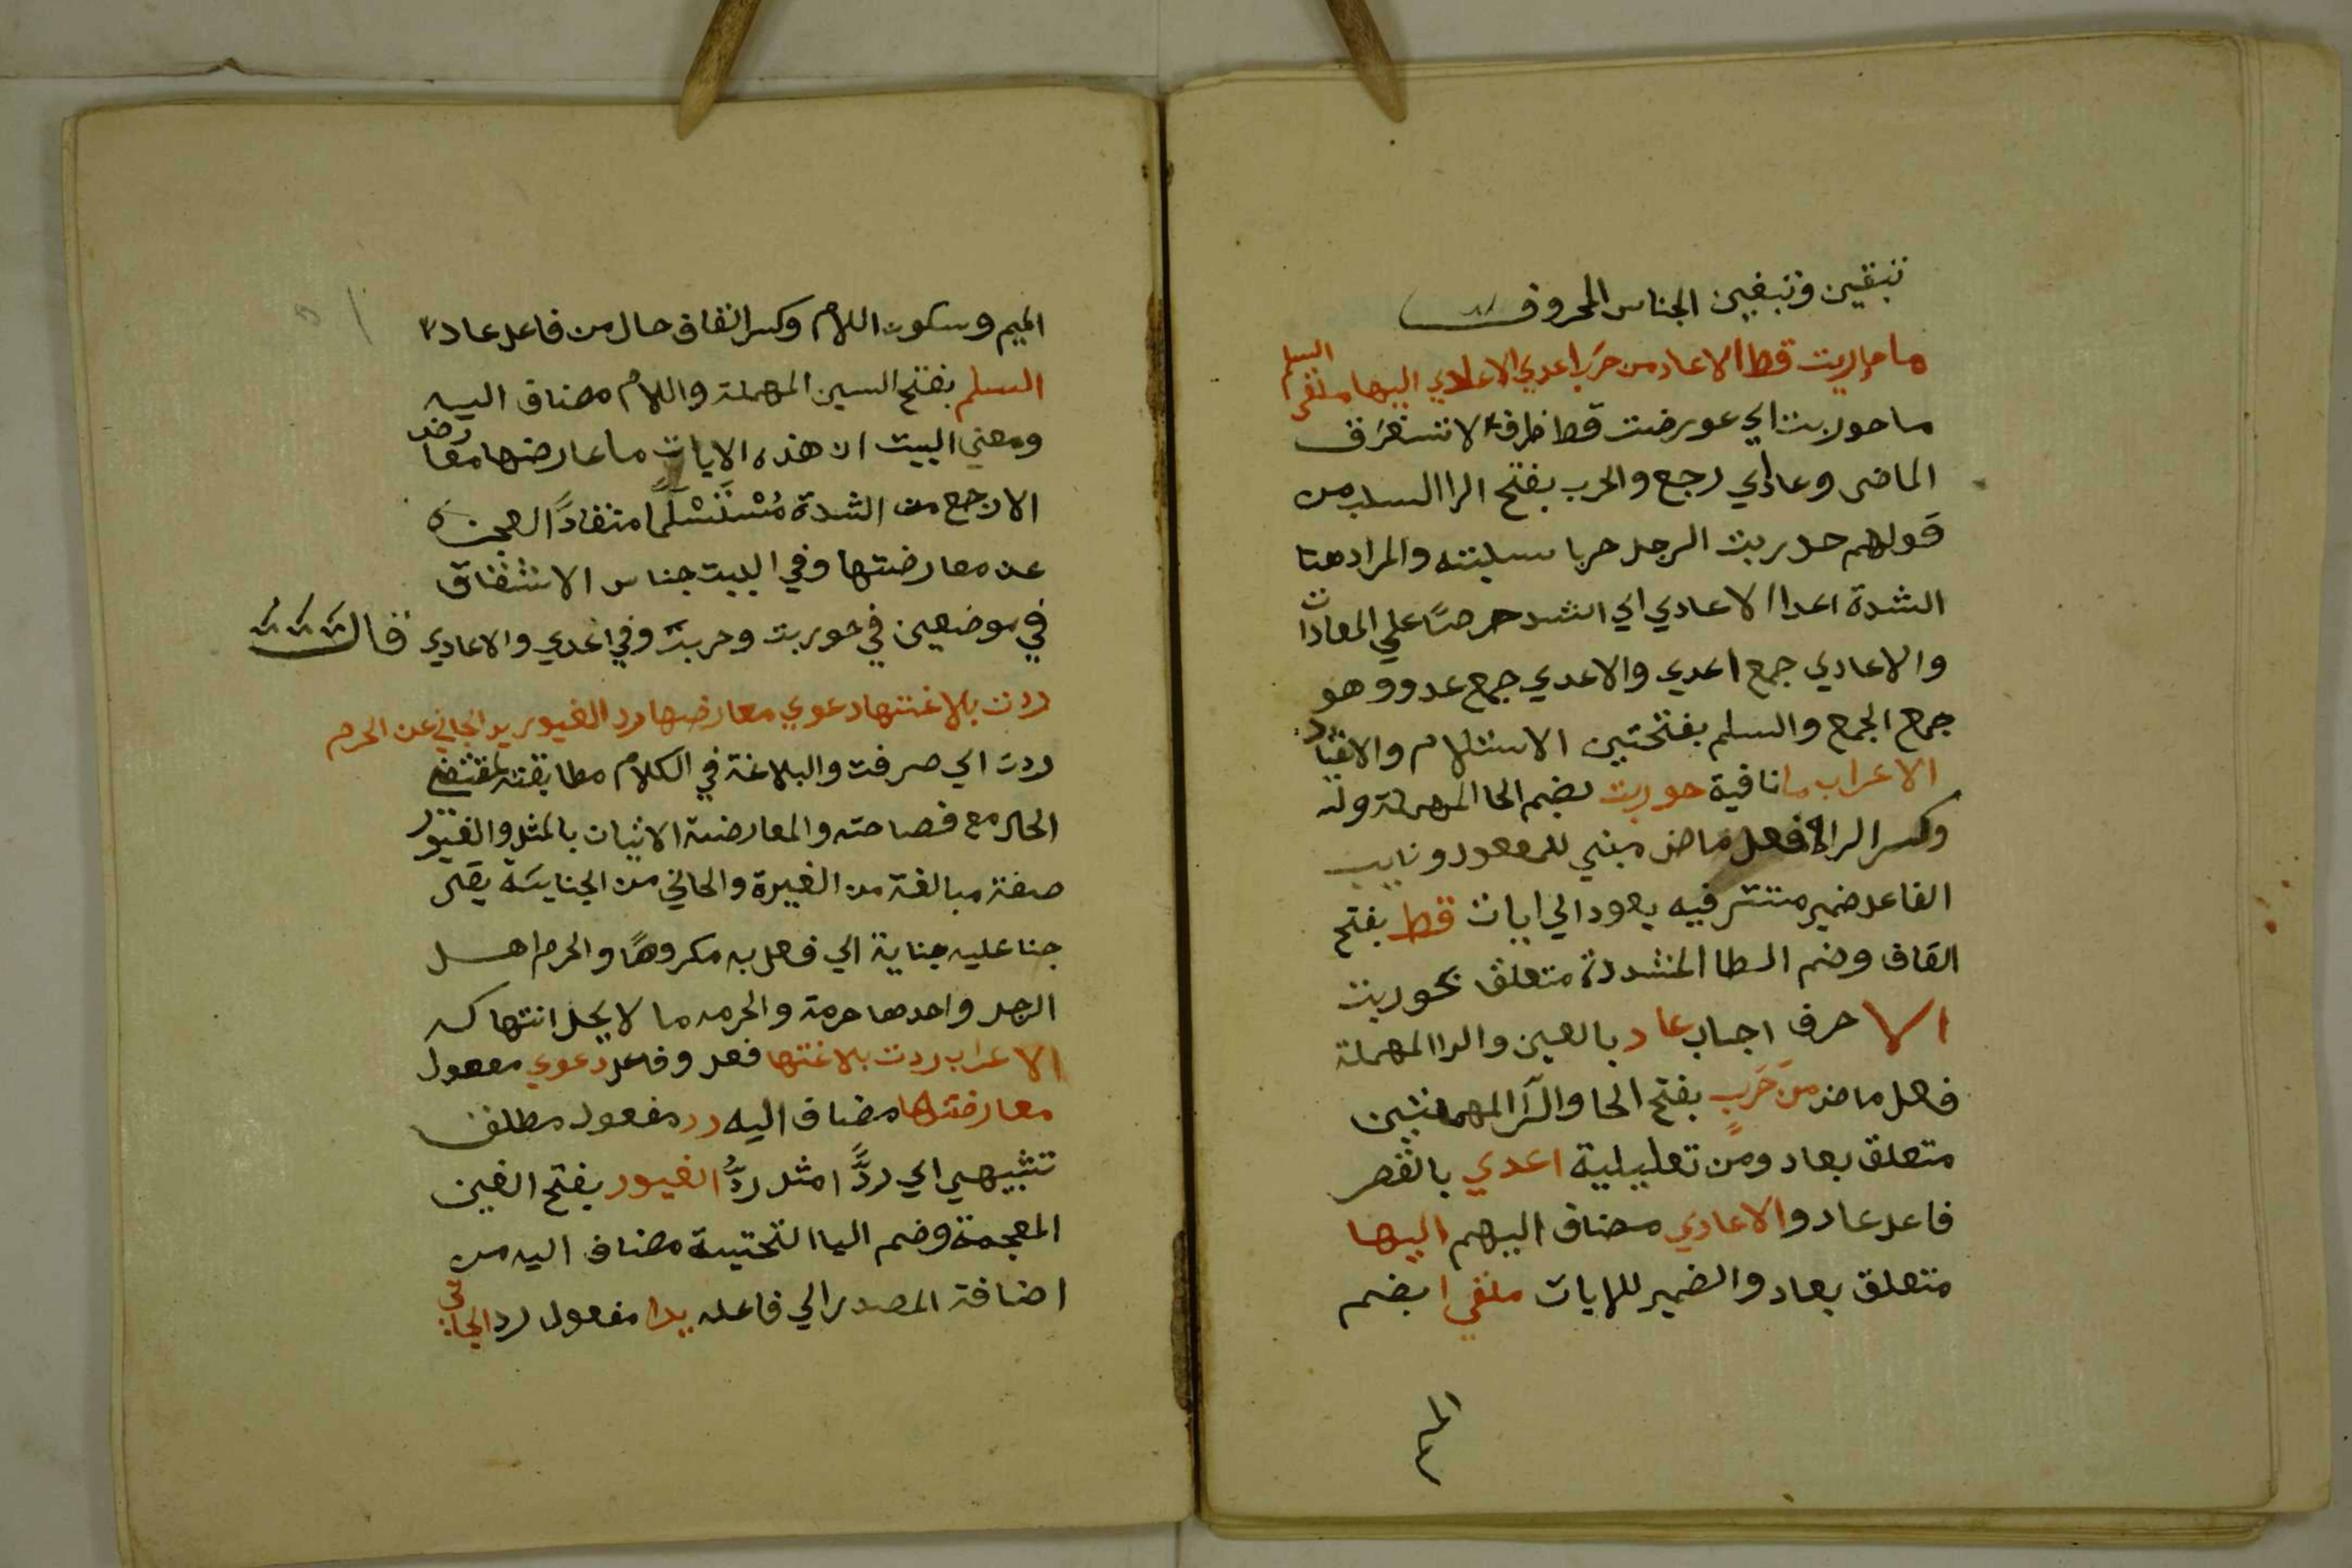 تبقين وتبغين الجناس المحروف
ما حوربت قط الا عاد من حرب اعدي الاعادي اليها ملقي السلم
ما حوربت اي عورضت قط ظرف لاستغرق
الماضي وعاد اي رجع والحرب بفتح الرا السلب من
قولهم حربت الرجل حربا سلبته والمراد هنا
الشدة اعدا الاعادي اي اشد حرصًا علي المعادات
والاعادي جمع اعدي والاعدي جمع عدو وهو
جمع الجمع والسلم بفتحتين الاستلام والانقياد
الاعراب ما نافية حوربت بضم الحا المهملة
وكسر الراء فعل ماض مبني للمعهود ونايب
الفاعل ضمير مستتر فيه يعود الي ايات قط بفتح
القاف وضم الطا المشددة متعلق بحوربت
الا حرف اجاب عاد بالعين والدا المهملة
فعل ماض من حَرَبٍ بفتح الحا والرا المهملتين
متعلق بعاد ومن تعليلية اعدي بالقصر
فاعل عاد والاعادي مضاف اليهم اليها
متعلق بعاد والضمير للايات ملقي بضم
الميم
الميم وسكون اللام وكسر القاف حال من فاعل عاد
السلم بفتح السين المهملة واللام مضاف اليه
ومعني البيت ان هذه الايات ما عارضها معارض
الا رجع من الشدة مُسْتَسْلَمًا منقادًا لعجزه
عن معارضتها وفي البيت جناس الاشتقاق
في موضعين في حوربت وحرب وفي اعدي والاعادي قال
ردت بلاغتها دعوي معارضها رد الغيور يد الجاني عن الحرم
ردت اي صرفت والبلاغة في الكلام مطابقته لمقتضي
الحال مع فصاحته والمعارضة الاتيان بالمثل والغيور
صفة مبالغة من الغيرة والجاني من الجناية يقال
جنا عليه جناية اي فعل به مكروهًا والحرم اهل
الرجل واحدها حرمة والحرمه ما لا يحل انتهاكه
الاعراب ردت بلاغتها فعل وفاعل دعوي مفعول
معارضها مضاف اليه رد مفعول مطلق
تشبيهي اي ردًّا مثل ردُّ الغيور بفتح الغين
المعجمة وضم اليا التحتية مضاف اليه من
اضافة المصدر الي فاعله يدا مفعول رد الجاني